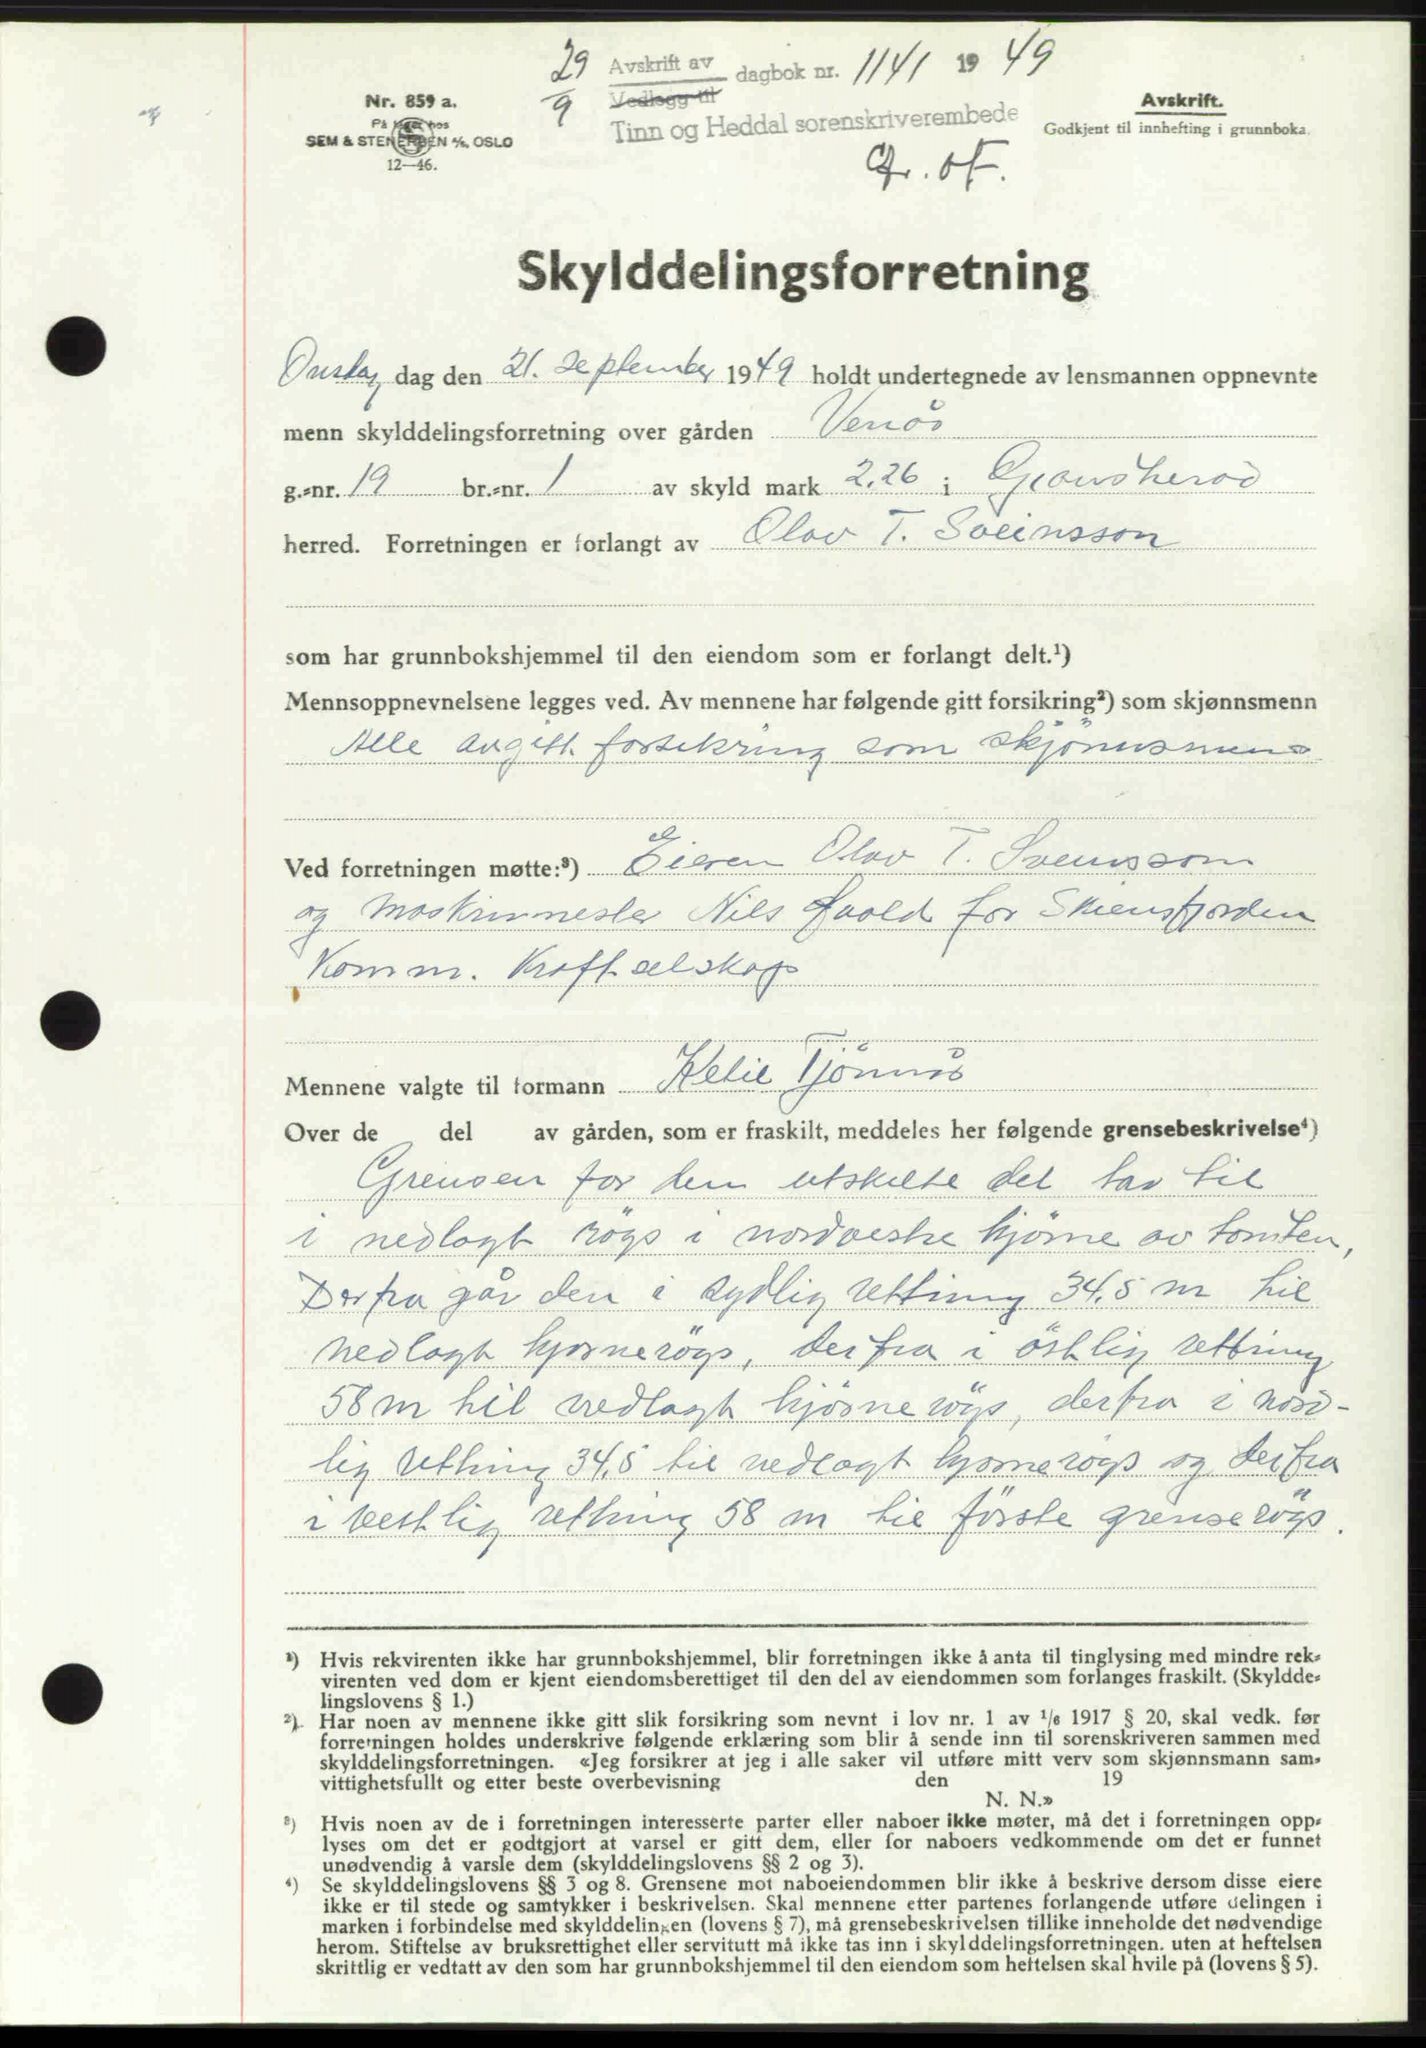 29/9 Avskrift av dagbok nr. 1141 1949
Vedlegg til
Tinn og Heddal sorenskriverembede
Nr. 859 a.
På lager hos
SEM & STENERSEN A/S, OSLO
12—46.
Avskrift.
Godkjent til innhefting i grunnboka.
Skylddelingsforretning
Onsdag dag den 21. september 1949 holdt undertegnede av lensmannen oppnevnte
menn skylddelingsforretning over gården Venås
g.=nr. 19 br.=nr. 1 av skyld mark 2,26 i Gransherad
herred. Forretningen er forlangt av Olav T. Sveinsson
som har grunnbokshjemmel til den eiendom som er forlangt delt.¹)
Mennsoppnevnelsene legges ved. Av mennene har følgende gitt forsikring²) som skjønnsmenn
Alle avgitt forsikring som skjönnsmenn
Ved forretningen møtte:³) Eieren Olav T. Sveinsson
og maskinmester Nils for Skiensfjorden
Komm. Kraftselskap
Mennene valgte til formann Ketil Tjönnås
Over de del av gården, som er fraskilt, meddeles her følgende grensebeskrivelse⁴)
Grensen for den utskilte del tar til
i nedlagt rögs i nordvestre hjörne av tomten,
Derfra går den i sydlig retning 34,5 m til
nedlagt hjørnerögs, derfra i östlig retning
58 m til nedlagt hjörnerögs, derfra i nord-
lig retning 34,5 til nedlagt hjornerögs og derfra
i vestlig retning 58 m til förste grenserögs.
¹) Hvis rekvirenten ikke har grunnbokshjemmel, blir forretningen ikke å anta til tinglysing med mindre rek=
virenten ved dom er kjent eiendomsberettiget til den del av eiendommen som forlanges fraskilt. (Skyldde=
lingslovens § 1.)
²) Har noen av mennene ikke gitt slik forsikring som nevnt i lov nr. 1 av 1/6 1917 § 20, skal vedk. før
forretningen holdes underskrive følgende erklæring som blir å sende inn til sorenskriveren sammen med
skylddelingsforretningen. «Jeg forsikrer at jeg i alle saker vil utføre mitt verv som skjønnsmann sam=
vittighetsfullt og etter beste overbevisning den 19
N. N.»
³) Hvis noen av de i forretningen interesserte parter eller naboer ikke møter, må det i forretningen opp=
lyses om det er godtgjort at varsel er gitt dem, eller for naboers vedkommende om det er funnet
unødvendig å varsle dem (skylddelingslovens §§ 2 og 3).
⁴) Se skylddelingslovens §§ 3 og 8. Grensene mot naboeiendommen blir ikke å beskrive dersom disse eiere
ikke er til stede og samtykker i beskrivelsen. Skal mennene etter partenes forlangende utføre delingen i
marken i forbindelse med skylddelingen (lovens § 7), må grensebeskrivelsen tillike inneholde det nødvendige
herom. Stiftelse av bruksrettighet eller servitutt må ikke tas inn i skylddelingsforretningen. uten at heftelsen
skrittlig er vedtatt av den som har grunnbokshjemmel til den eiendom som heftelsen skal hvile på (lovens § 5).